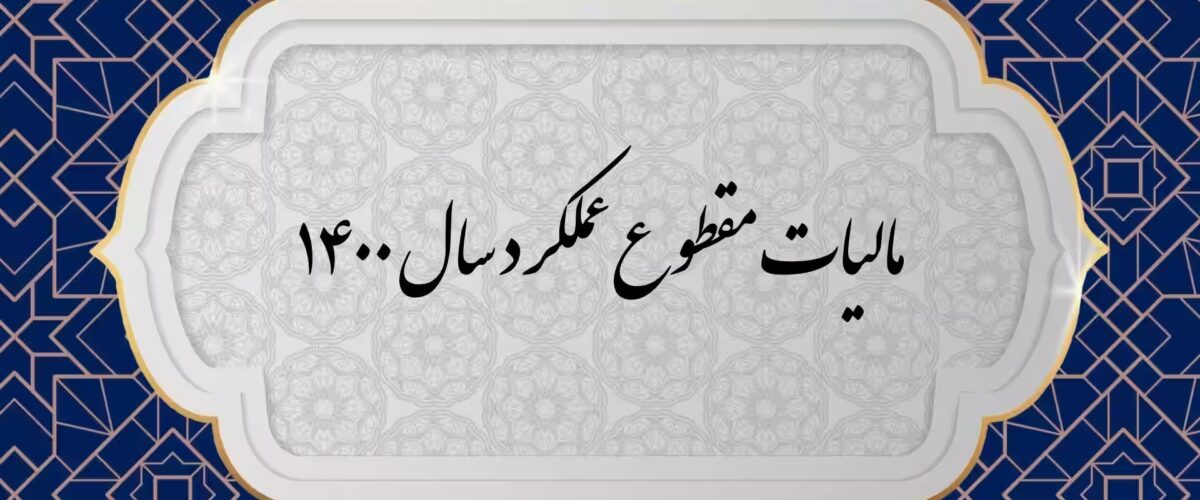 مالیات مقطوع عملکرد سال ۱۴۰۰